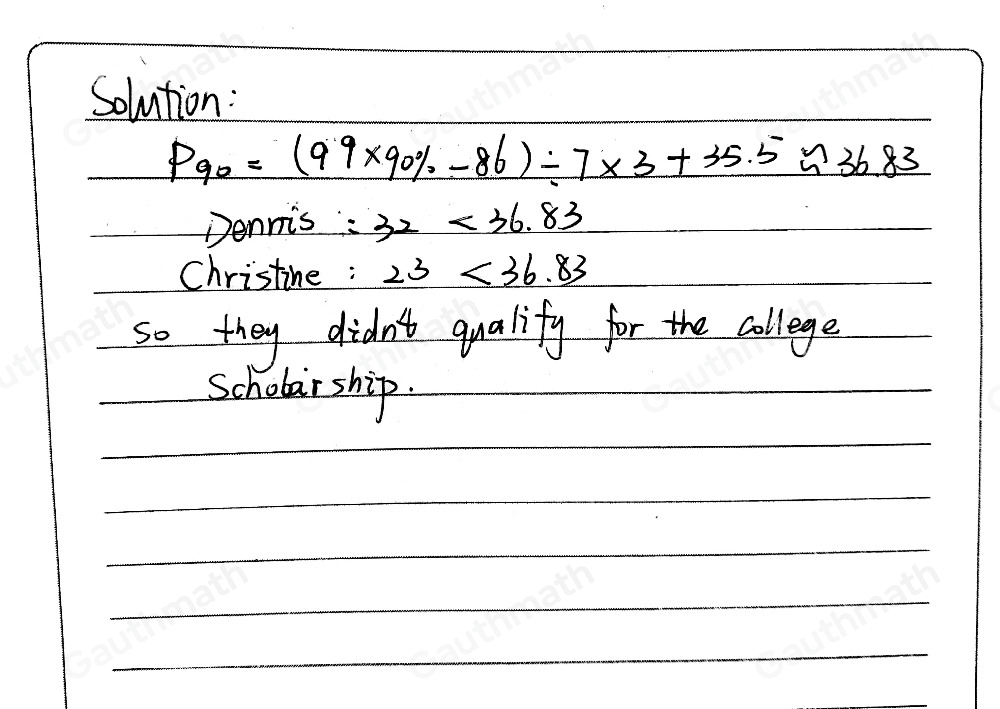 Solution:
P90 = (99×90% -86)÷7×3+35.5 ≈ 36.83
Dennis : 32 < 36.83
Christine : 23 < 36.83
so they didn't qualify for the college
Scholarship.